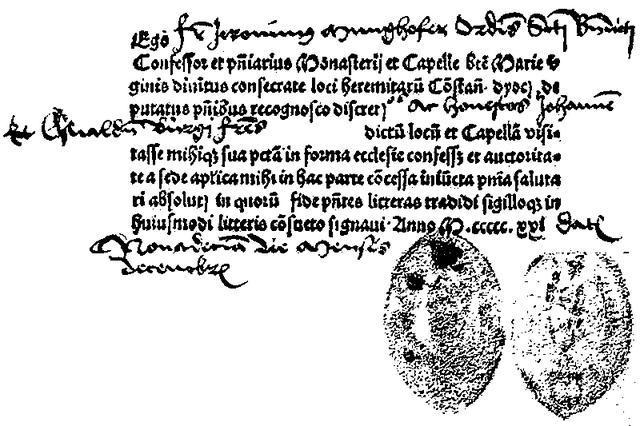 Ego fr Jeronimus Munghofer Ordis Scti Bndicti
Confessor et pñiarius Monasterij et Capelle btẽ Marie v
ginis diuitus consecrate loci heremitarũ Cõstañ. dyoc. de
putatus pñibus recognosco discret Ac honestos Johannẽ
et Oswaldũ fres dictũ locũ et Capellã visi-
tasse mihiqʒ sua pctã in forma ecclesie confessʒ et auctorita-
te a sede aplica mihi in hac parte cõcessa iniũcta pnia saluta
ri absolut in quorũ fide pñtes litteras tradidi sigilloqʒ in
huiusmodi litteris cõsueto signaui. Anno M.ccccc.xxi dat
die Mensis
decembr